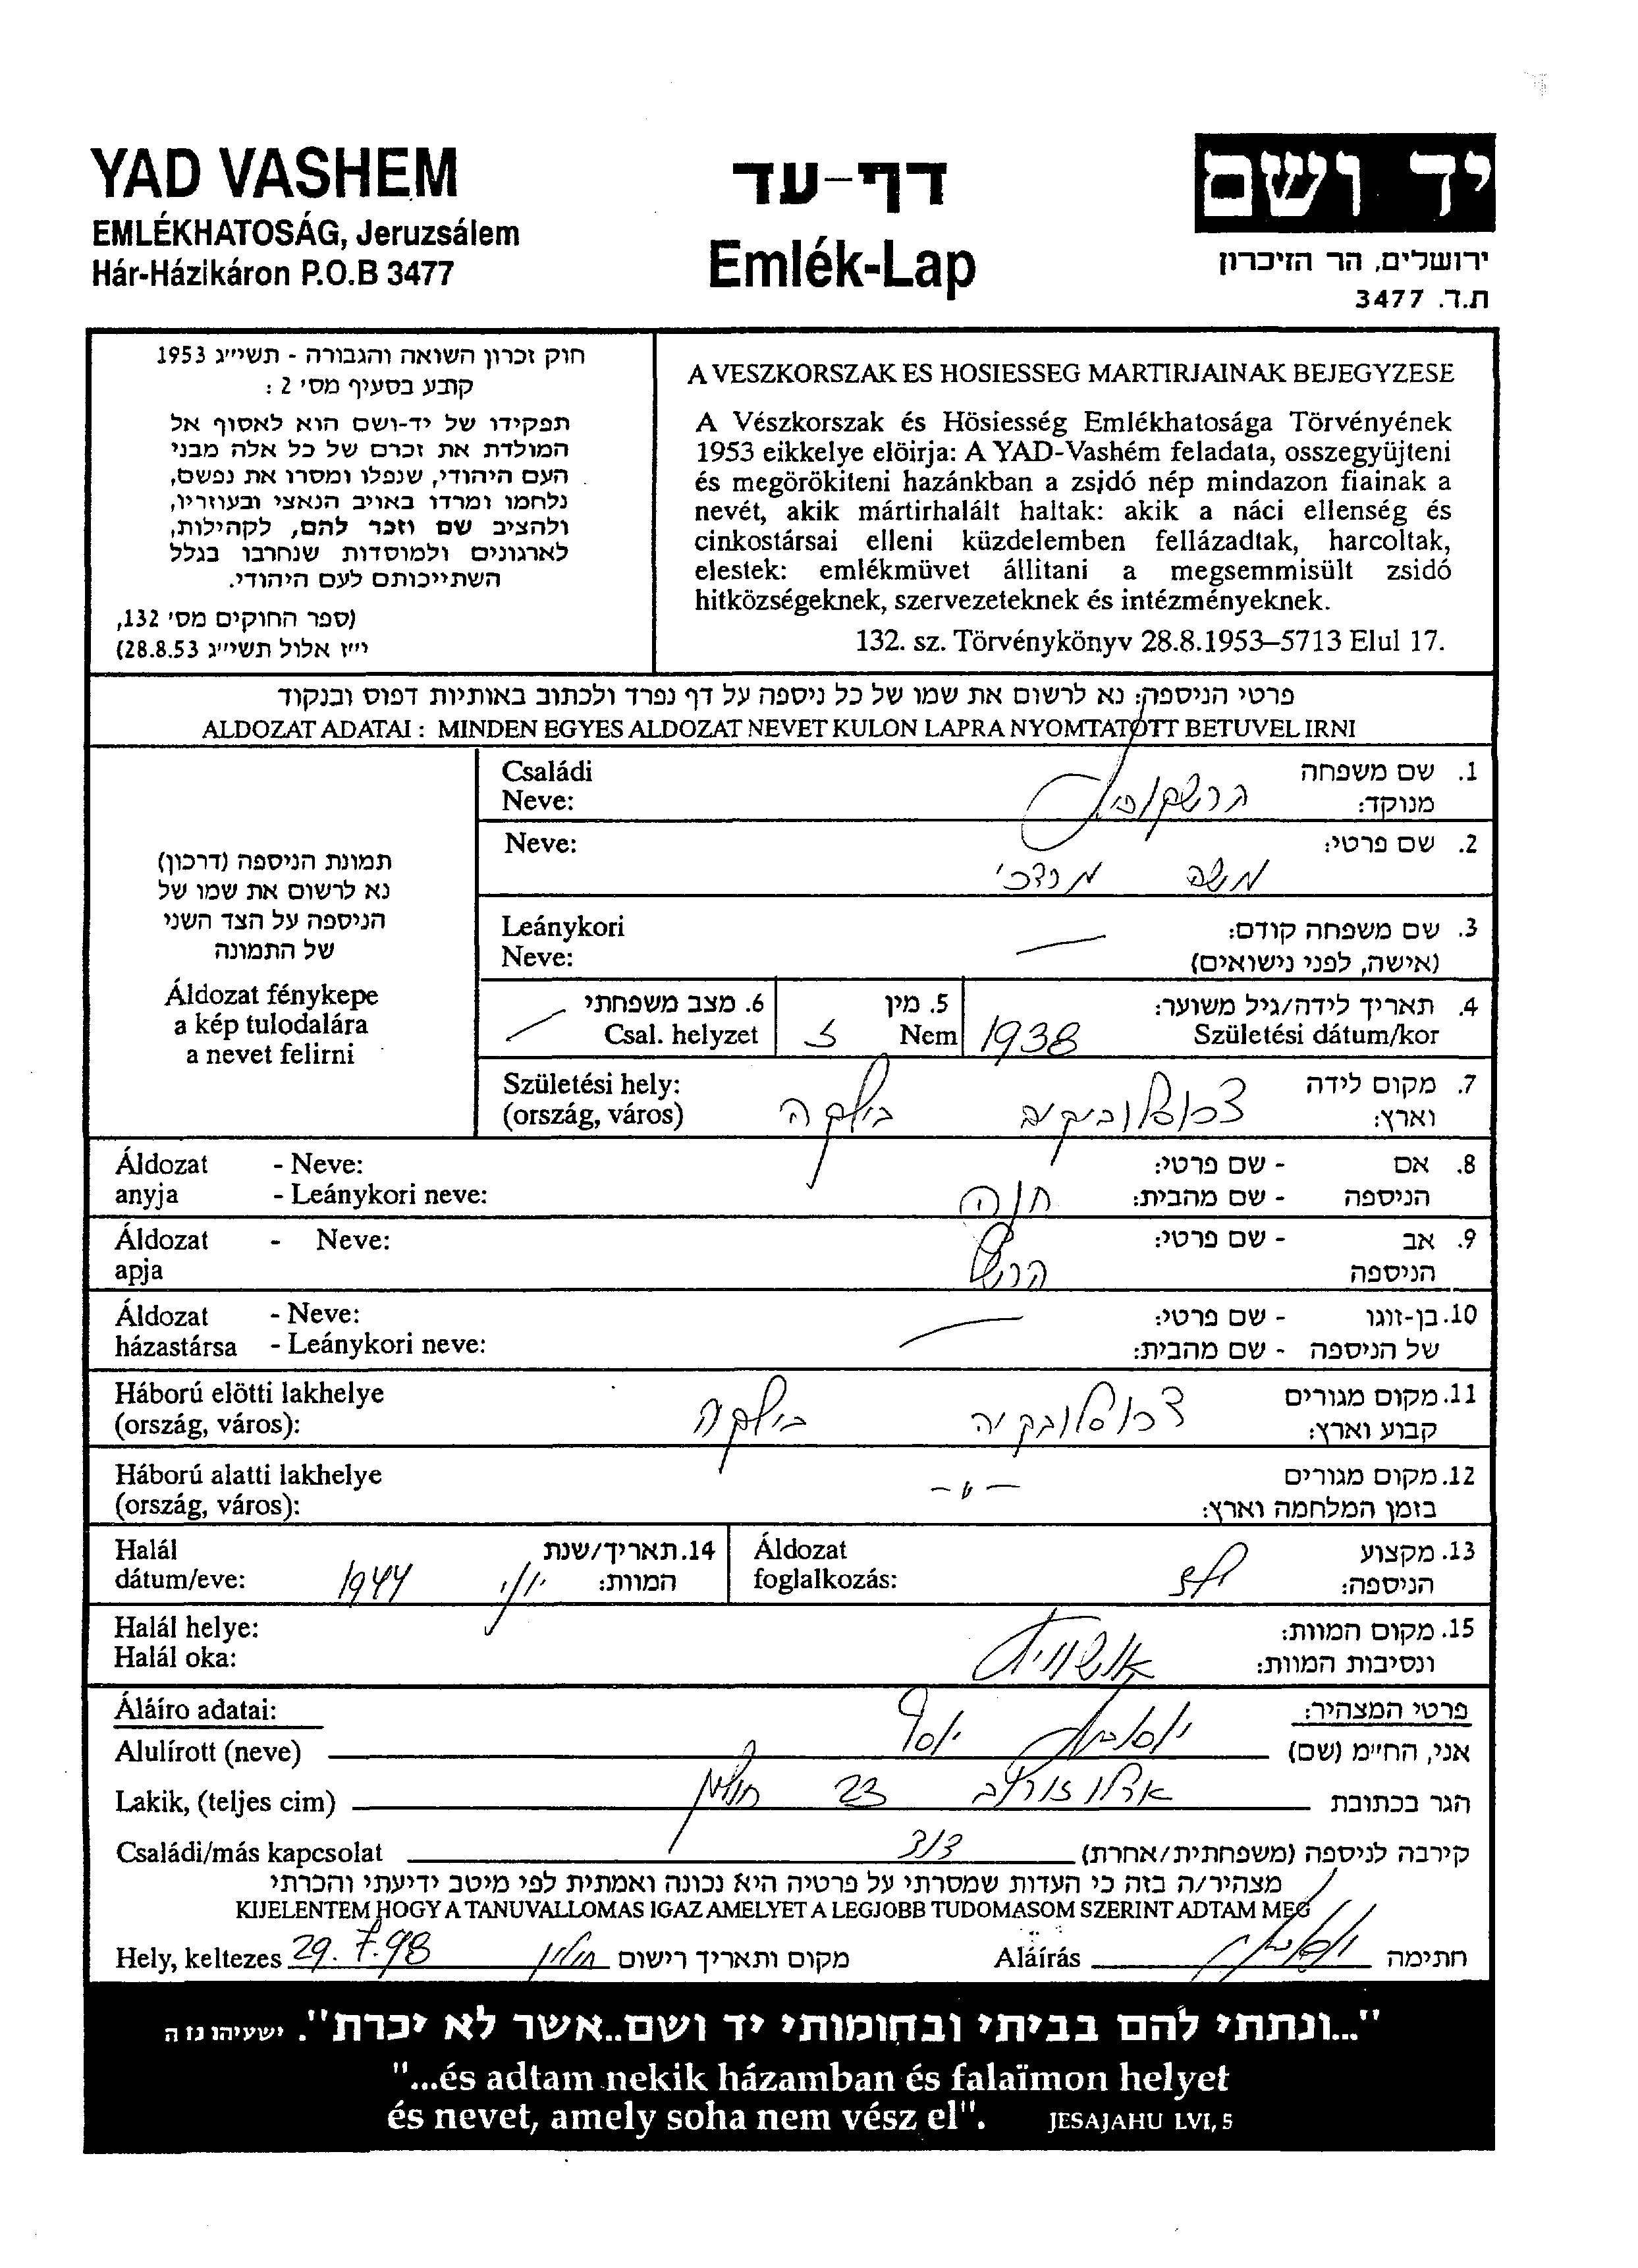 YAD VASHEM
EMLÉKHATOSÁG, Jeruzsálem
Hár-Házikáron P.O.B 3477
דף-עד
Emlék-Lap
יד ושם
ירושלים, הר הזיכרון
ת.ד. 3477
חוק זכרון השואה והגבורה - תשי״ג 1953
קובע בסעיף מס׳ 2 :
תפקידו של יד-ושם הוא לאסוף אל
המולדת את זכרם של כל אלה מבני
העם היהודי, שנפלו ומסרו את נפשם,
נלחמו ומרדו באויב הנאצי ובעוזריו,
ולהציב שם וזכר להם, לקהילות,
לארגונים ולמוסדות שנחרבו בגלל
השתייכותם לעם היהודי.
(ספר החוקים מס׳ 132,
י״ז אלול תשי״ג 28.8.53)
A VESZKORSZAK ES HOSIESSEG MARTIRJAINAK BEJEGYZESE
A Vészkorszak és Hösiesség Emlékhatosága Törvényének
1953 eikkelye elöirja: A YAD-Vashém feladata, osszegyüjteni
és megörökiteni hazánkban a zsidó nép mindazon fiainak a
nevét, akik mártirhalált haltak: akik a náci ellenség és
cinkostársai elleni küzdelemben fellázadtak, harcoltak,
elestek: emlékmüvet állitani a megsemmisült zsidó
hitközségeknek, szervezeteknek és intézményeknek.
132. sz. Törvénykönyv 28.8.1953–5713 Elul 17.
פרטי הניספה: נא לרשום את שמו של כל ניספה על דף נפרד ולכתוב באותיות דפוס ובנקוד
ALDOZAT ADATAI : MINDEN EGYES ALDOZAT NEVET KULON LAPRA NYOMTATOTT BETUVEL IRNI
תמונת הניספה (דרכון)
נא לרשום את שמו של
הניספה על הצד השני
של התמונה
Áldozat fénykepe
a kép tulodalára
a nevet felirni
Családi 1. שם משפחה
Neve: מנוקד: הרשקוביץ
Neve: 2. שם פרטי:
משה מרדכי
Leánykori 3. שם משפחה קודם:
Neve: (אישה, לפני נישואים) —
6. מצב משפחתי 5. מין 4. תאריך לידה/גיל משוער:
Csal. helyzet — Nem ז Születési dátum/kor 1938
Születési hely: 7. מקום לידה
(ország, város) וארץ: צכוסלובקיה בילקה
Áldozat - Neve: 8. אם - שם פרטי:
anyja - Leánykori neve: הניספה - שם מהבית: חנה
Áldozat - Neve: 9. אב - שם פרטי:
apja הניספה הרש
Áldozat - Neve: 10. בן-זוגו - שם פרטי: —
házastársa - Leánykori neve: של הניספה - שם מהבית:
Háború elötti lakhelye 11. מקום מגורים
(ország, város): קבוע וארץ: צכוסלובקיה בילקה
Háború alatti lakhelye 12. מקום מגורים
(ország, város): בזמן המלחמה וארץ: — " —
Halál 14. תאריך/שנת Áldozat 13. מקצוע
dátum/eve: המוות: יוני 1944 foglalkozás: הניספה: ילד
Halál helye: 15. מקום המוות:
Halál oka: ונסיבות המוות: אושוויץ
Áláíro adatai: פרטי המצהיר:
Alulírott (neve) אני, החי״מ (שם) יוסף
Lakik, (teljes cim) הגר בכתובת 23 חולון
Családi/más kapcsolat קירבה לניספה (משפחתית/אחרת) דוד
מצהיר/ה בזה כי העדות שמסרתי על פרטיה היא נכונה ואמתית לפי מיטב ידיעתי והכרתי
KIJELENTEM HOGY A TANUVALLOMAS IGAZ AMELYET A LEGJOBB TUDOMASOM SZERINT ADTAM MEG
Hely, keltezes 29.7.98 חולון מקום ותאריך רישום Aláírás חתימה
"...ונתתי להם בביתי ובחומותי יד ושם..אשר לא יכרת". ישעיהו נז ה
"...és adtam nekik házamban és falaïmon helyet
és nevet, amely soha nem vész el". JESAJAHU LVI, 5